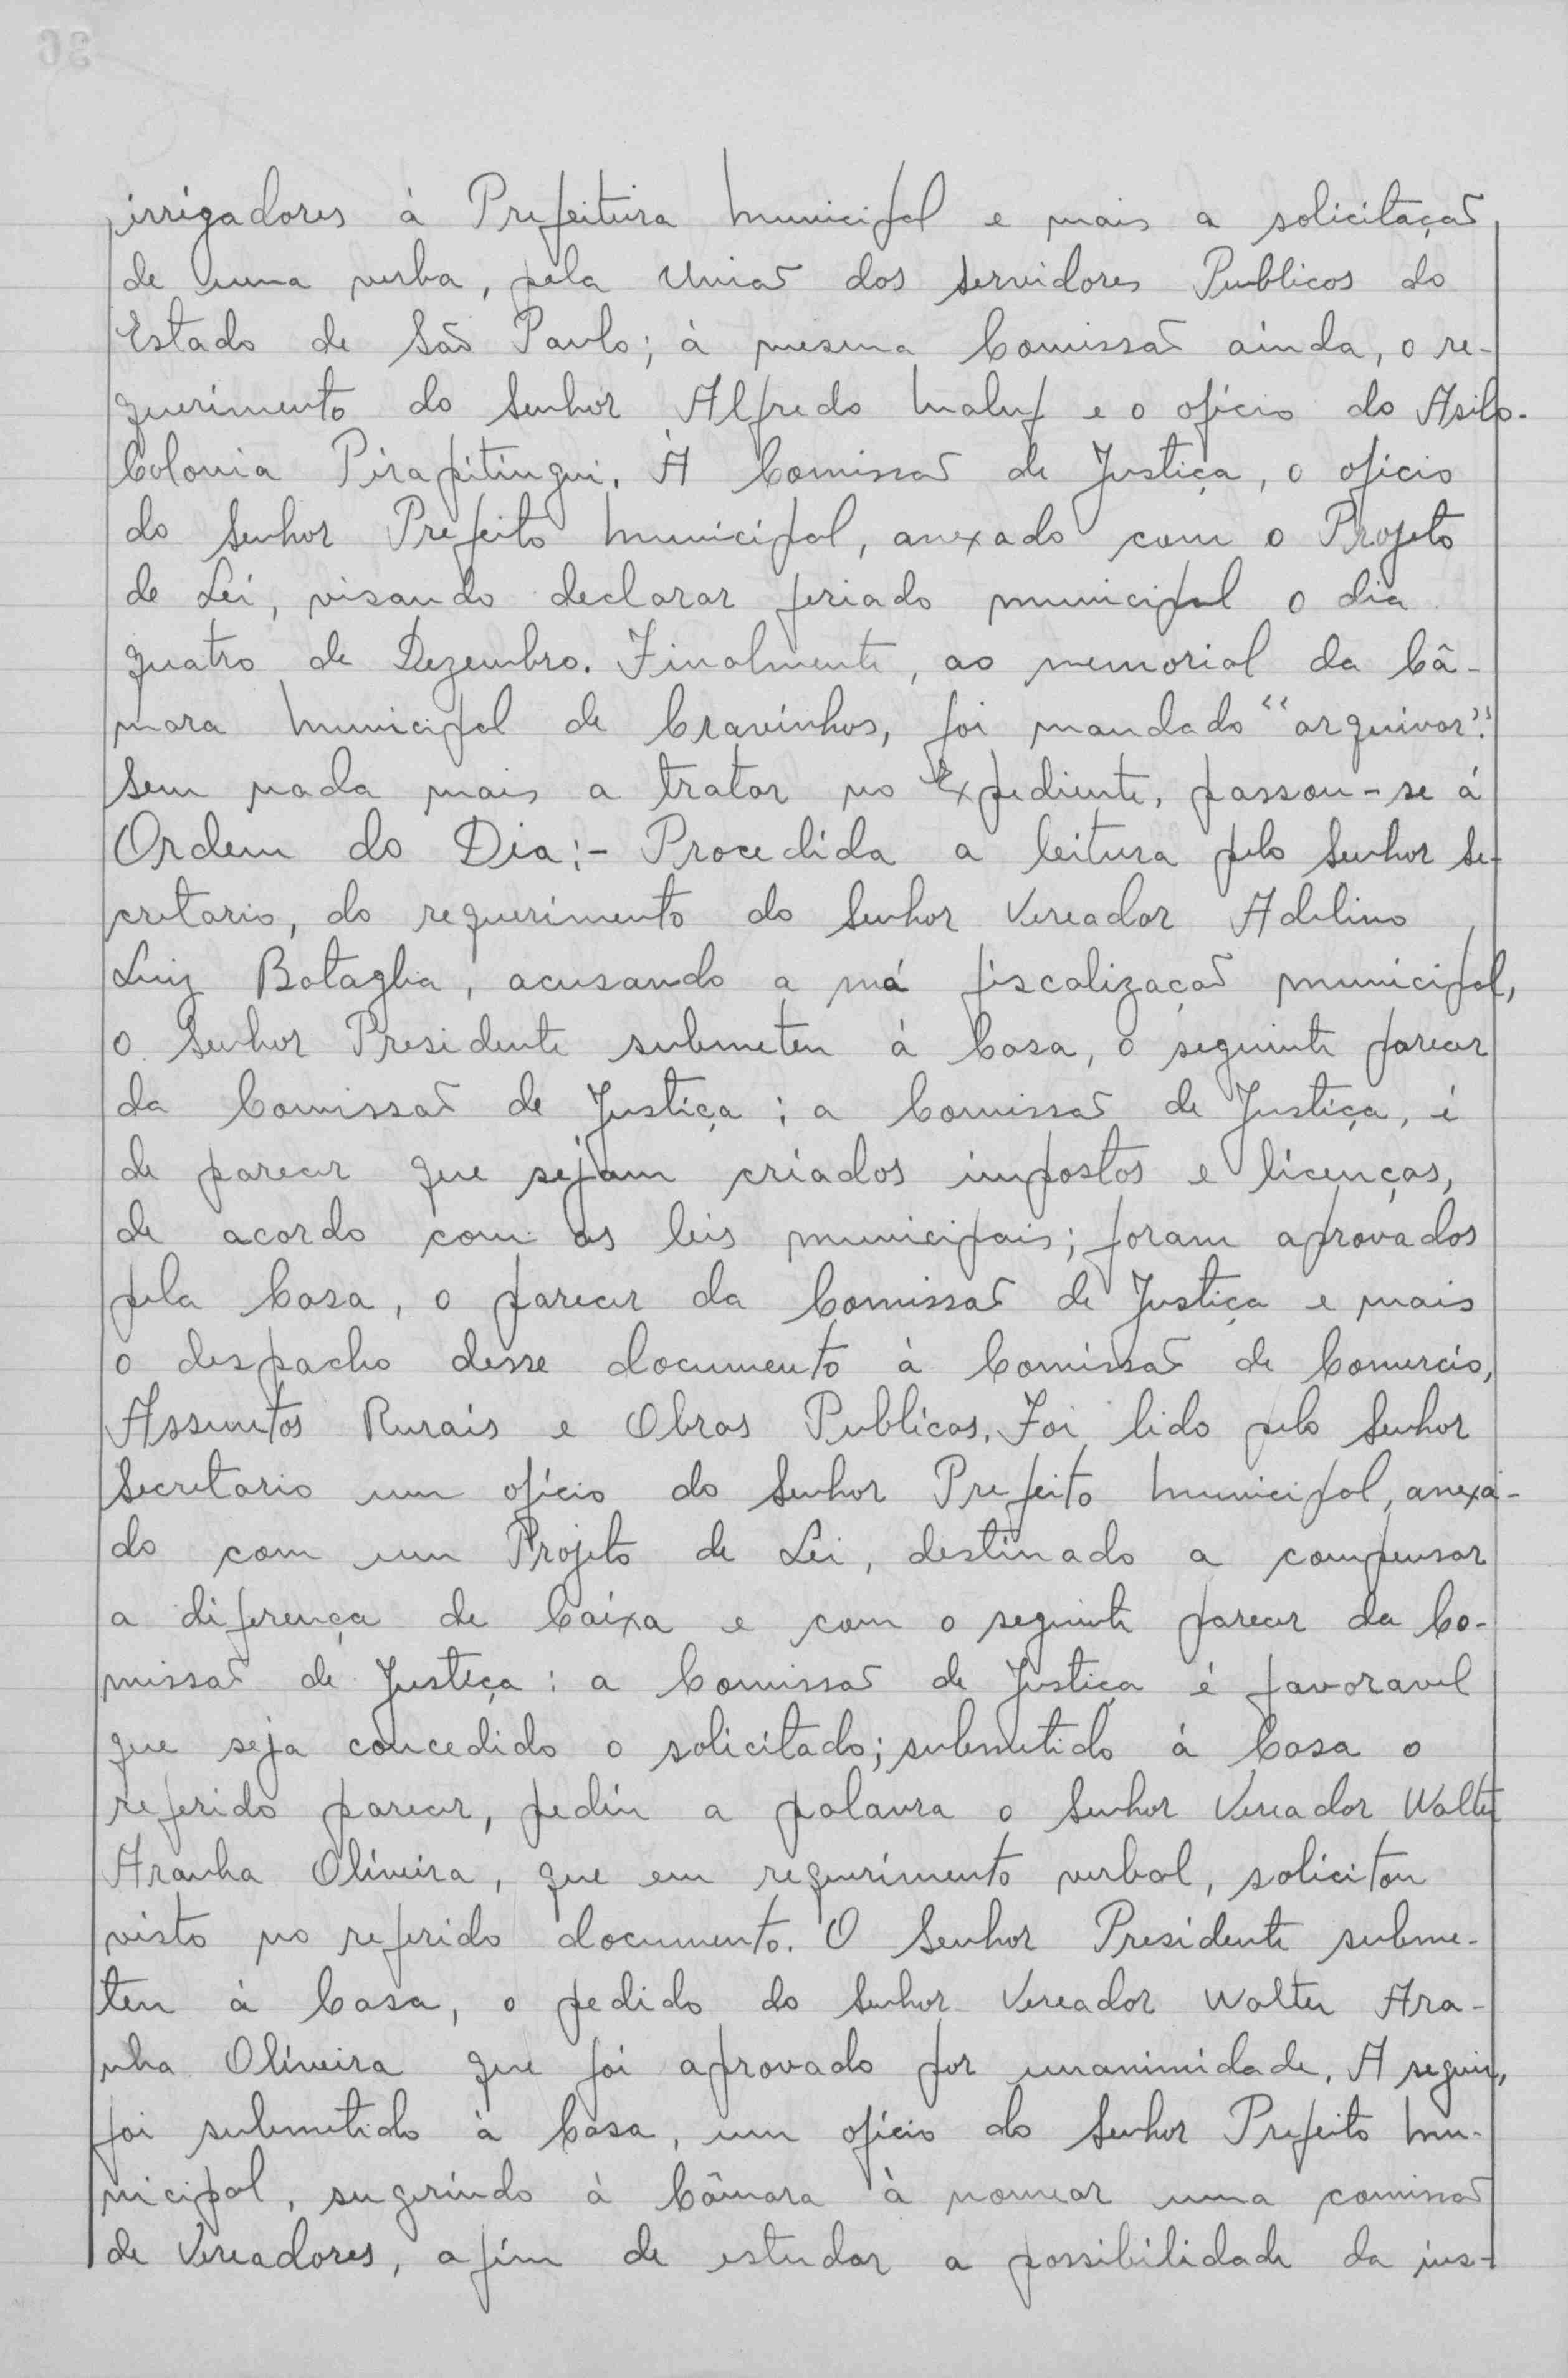 irrigadores á Prefeitura Municipal e mais a solicitação
de uma verba, pela União dos Servidores Publicos do
Estado de São Paulo; á mesma Comissão ainda, o re-
querimento do Senhor Alfredo Maluf e o oficio do Asilo-
Colonia Pirapitingui. Á Comissão de Justiça, o oficio
do Senhor Prefeito Municipal, anexado com o Projeto
de Lei, visando declarar feriado municipal o dia
quatro de Dezembro. Finalmente, ao memorial da Câ-
mara Municipal de Cravinhos, foi mandado "arquivar".
Sem nada mais a tratar no Expediente, passou-se á
Ordem do Dia:- Procedida a leitura pelo Senhor Se-
cretario, do requerimento do Senhor Vereador Adelino
Luiz Bataglia, acusando a má fiscalização municipal,
o Senhor Presidente submeteu á Casa, o seguinte parecer
da Comissão de Justiça: a Comissão de Justiça, é
de parecer que sejam criados impostos e licenças,
de acordo com as leis municipais; foram aprovados
pela Casa, o parecer da Comissão de Justiça e mais
o despacho desse documento á Comissão de Comercio,
Assuntos Rurais e Obras Publicas. Foi lido pelo Senhor
Secretario um oficio do Senhor Prefeito Municipal, anexa-
do com um Projeto de Lei, destinado a compensar
a diferença de Caixa e com o seguinte parecer da Co-
missão de Justiça: a Comissão de Justiça é favoravel
que seja concedido o solicitado; submetido á Casa o
referido parecer, pediu a palavra o Senhor Vereador Walter
Aranha Oliveira, que em requerimento verbal, solicitou
visto no referido documento. O Senhor Presidente subme-
teu á Casa, o pedido do Senhor Vereador Walter Ara-
nha Oliveira que foi aprovado por unanimidade. A seguir,
foi submetido á Casa, um oficio do Senhor Prefeito Mu-
nicipal, sugerindo á Câmara á nomear uma comissão
de Vereadores, afim de estudar a possibilidade da ins-